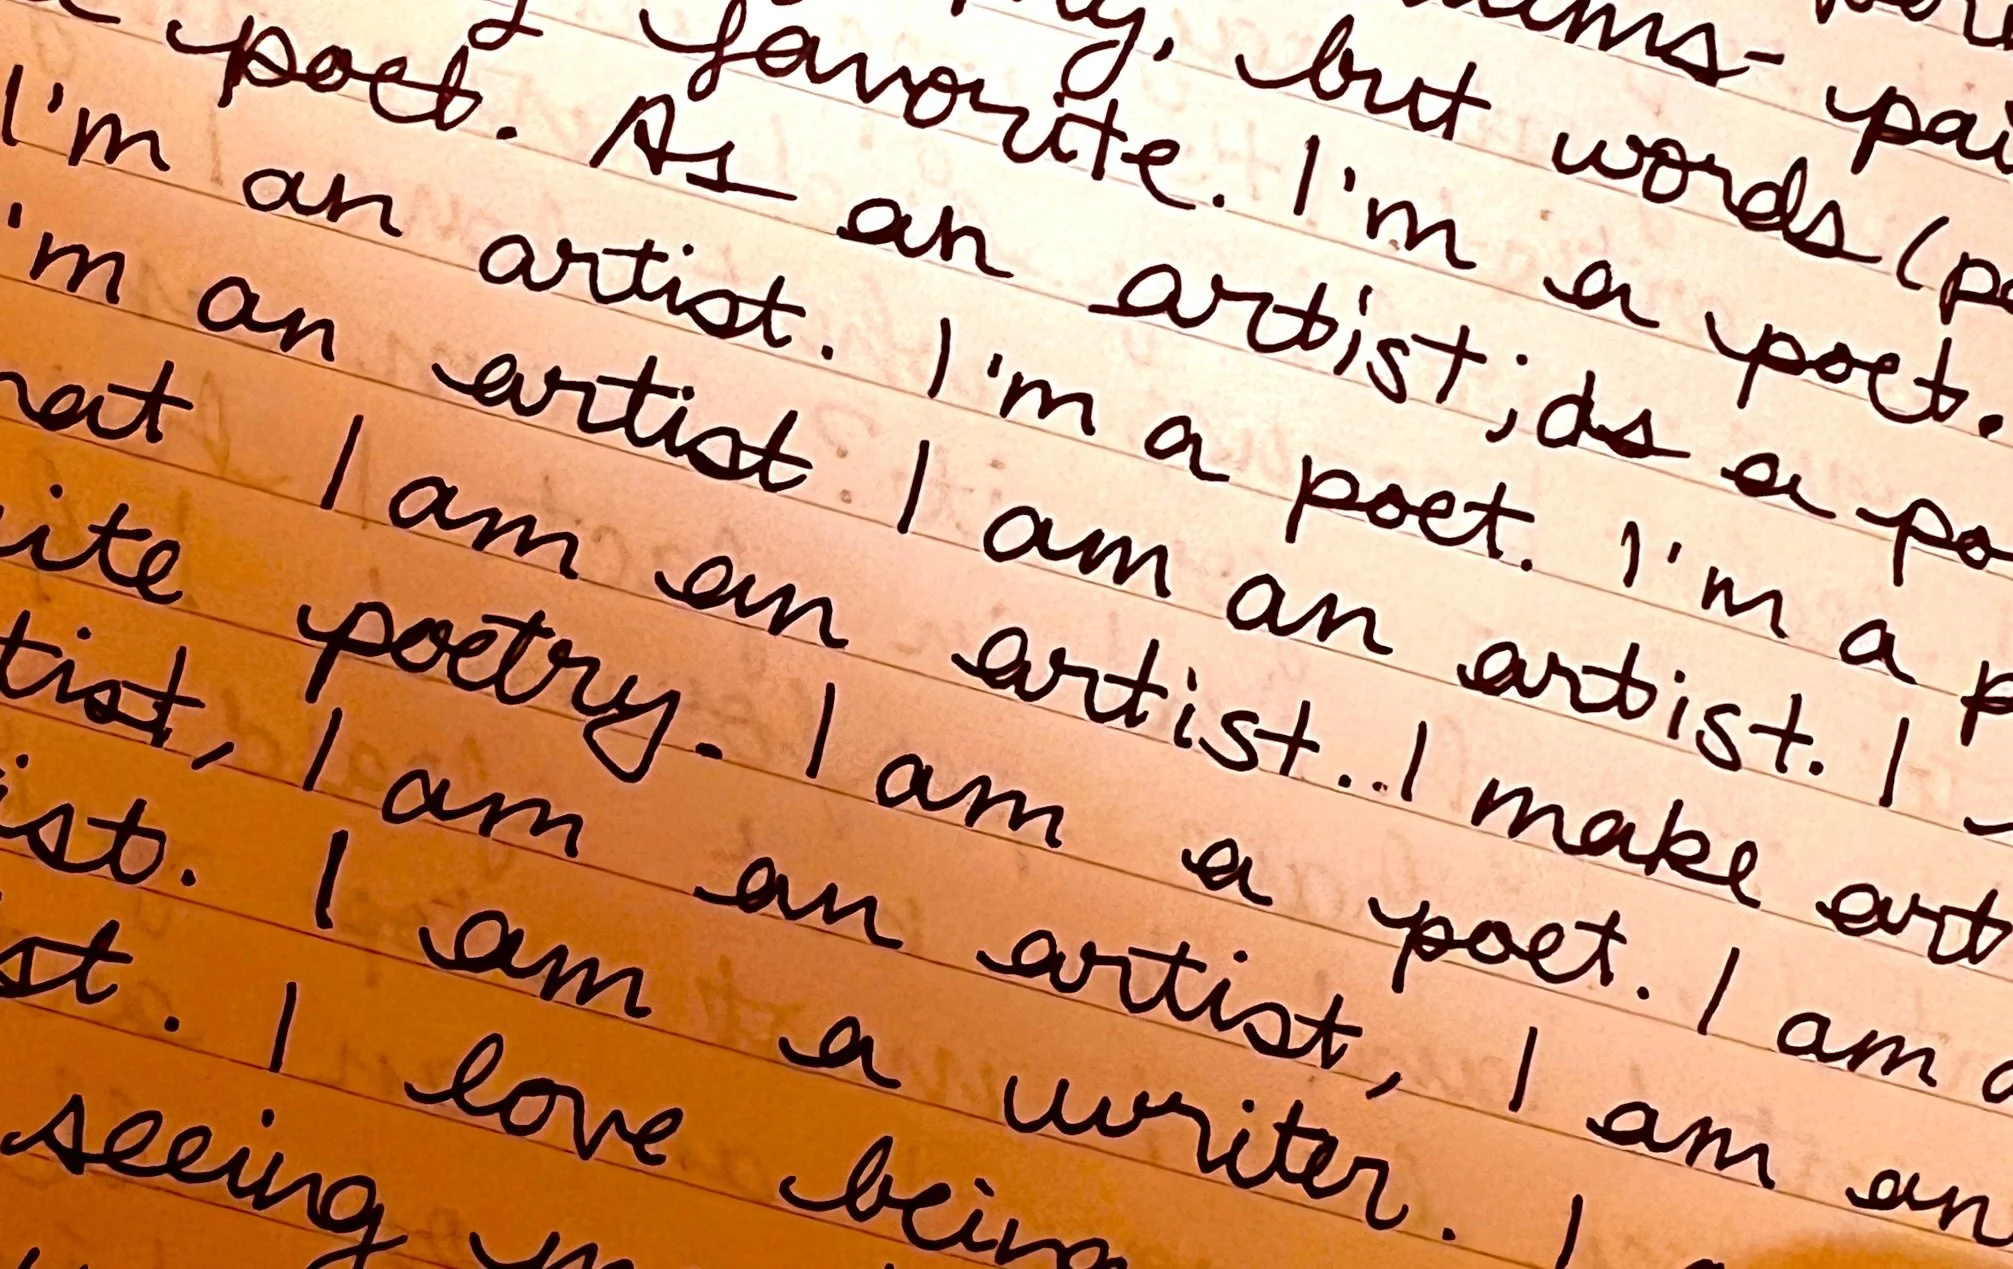 ums- pai
ny, but words (po
favorite. I'm a poet.
a poet. As an artist; as a po
I'm an artist. I'm a poet. I'm a p
'm an artist. I am an artist. I
hat I am an artist.. I make art
ite poetry. I am a poet. I am a
tist, I am an artist, I am an
ist. I am a writer. I
st. I love being
seeing